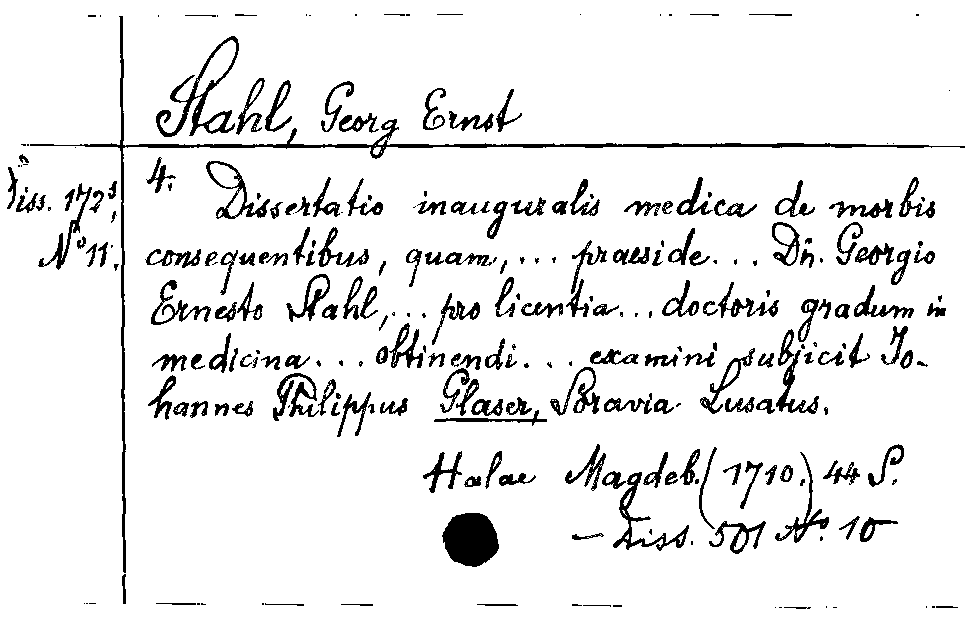 Stahl, Georg Ernst
Diss. 172⁵,
Nº 11.
4. Dissertatio inauguralis medica de morbis
consequentibus, quam, ... praeside ... Dn̄. Georgio
Ernesto Stahl, ... pro licentia ... doctoris gradum in
medicina ... obtinendi ... examini subjicit Jo-
hannes Philippus Glaser, Soravia Lusatus.
Halae Magdeb. (1710.) 44 S.
– Diss. 501 Nº 10